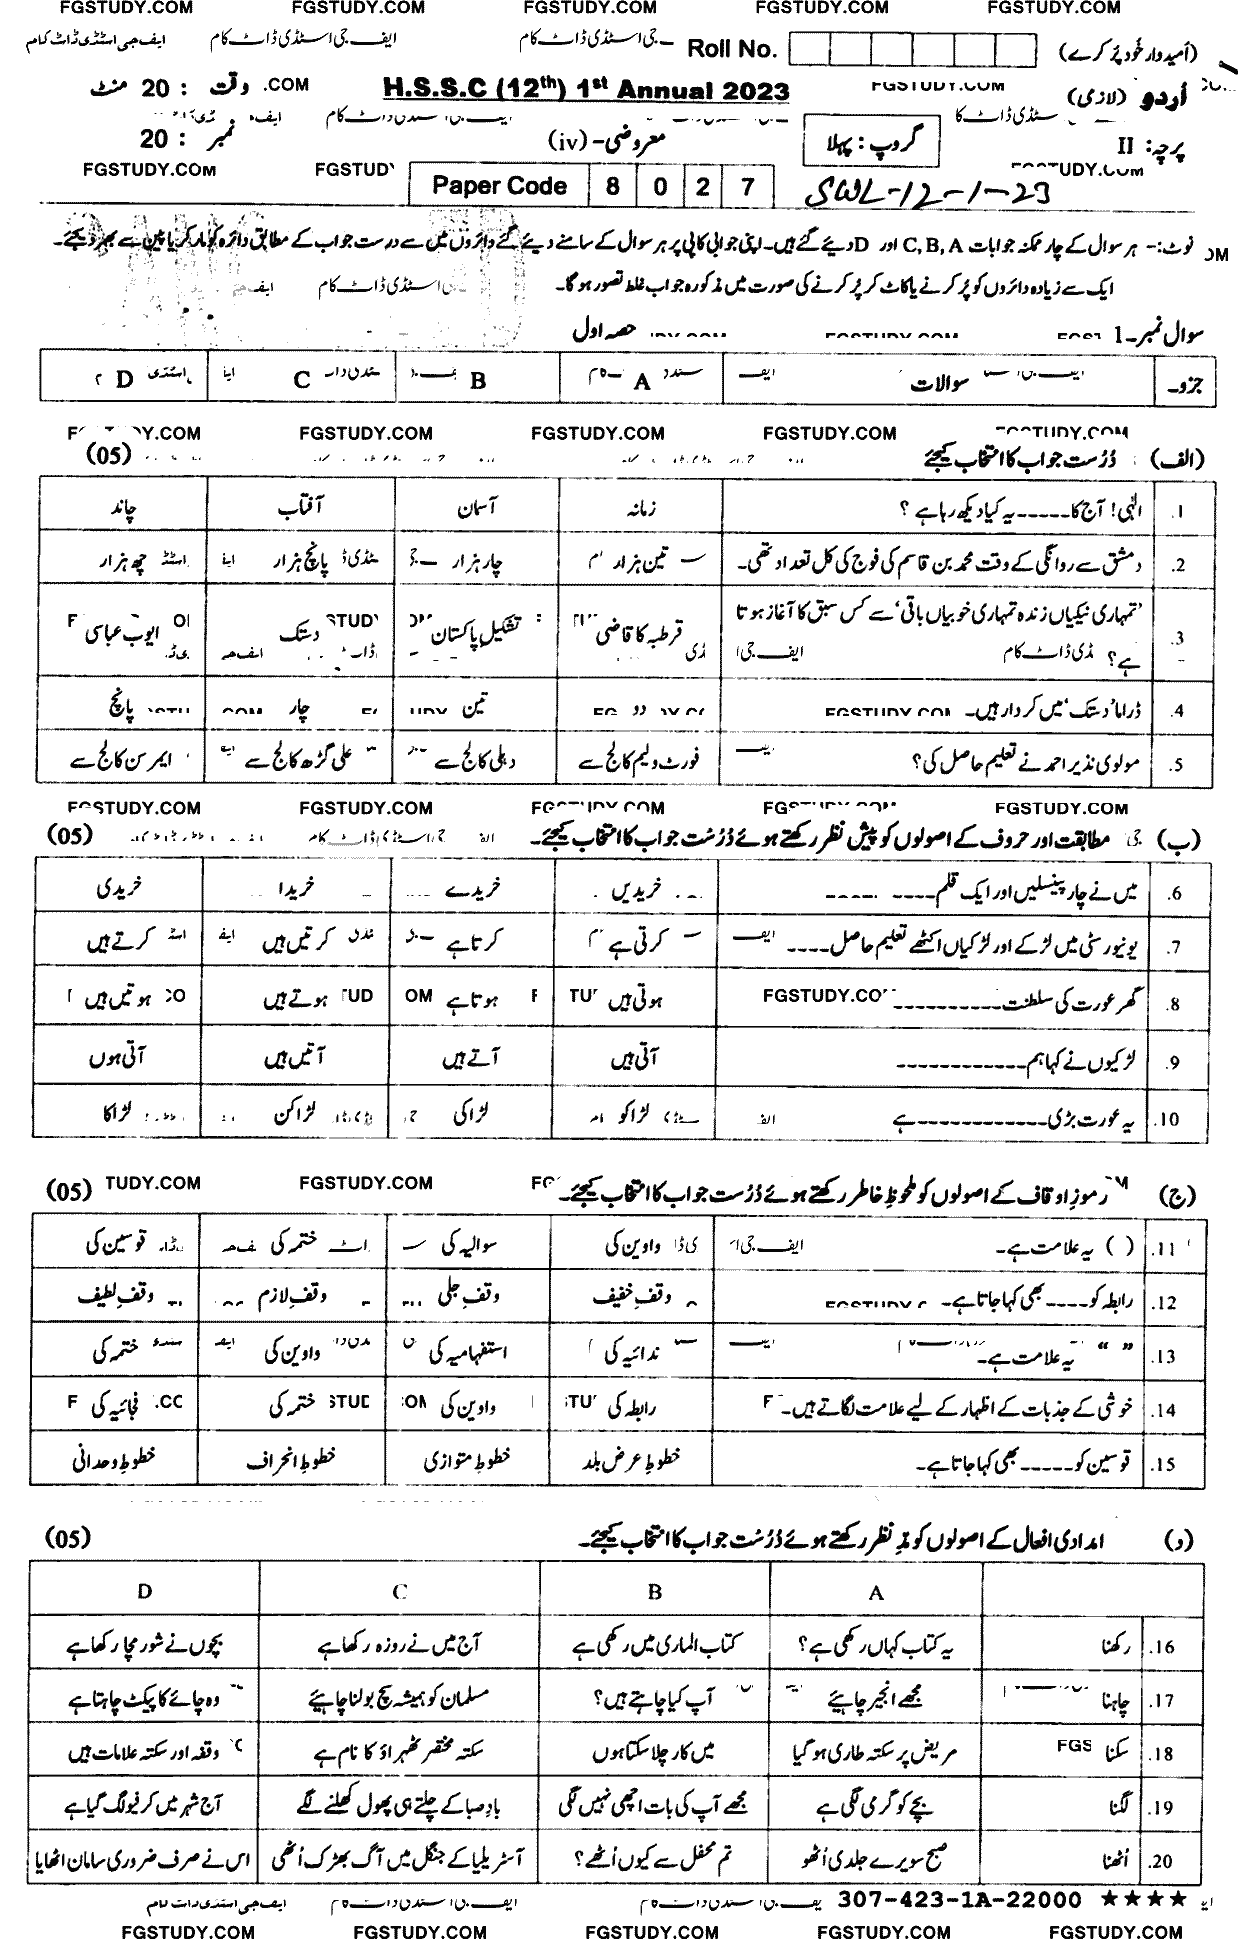 FGSTUDY.COM FGSTUDY.COM FGSTUDY.COM FGSTUDY.COM FGSTUDY.COM
(اُمیدوار خُود پُر کرے) Roll No. ایف جی اسٹڈی ڈاٹ کام ایف جی اسٹڈی ڈاٹ کام
اُردو (لازمی) H.S.S.C (12th) 1st Annual 2023 وقت : 20 منٹ
پرچہ: II گروپ : پہلا معروضی-(iv) نمبر : 20
FGSTUDY.COM
Paper Code 8 0 2 7 SWL-12-1-23
نوٹ:- ہر سوال کے چار ممکنہ جوابات C, B, A اور D دیئے گئے ہیں۔ اپنی جوابی کاپی پر ہر سوال کے سامنے دیئے گئے دائروں میں سے درست جواب کے مطابق دائرہ کو مارکر یا پین سے بھر دیجئے۔
ایک سے زیادہ دائروں کو پُر کرنے یا کاٹ کر پُر کرنے کی صورت میں مذکورہ جواب غلط تصور ہوگا۔
سوال نمبر۔1 حصہ اول
جزو۔ سوالات A B C D
FGSTUDY.COM FGSTUDY.COM FGSTUDY.COM
(الف) دُرُست جواب کا انتخاب کیجئے (05)
.1 الٰہی! آج کا-----یہ کیا دیکھ رہا ہے ؟ زمانہ آسمان آفتاب چاند
.2 دمشق سے روانگی کے وقت محمد بن قاسم کی فوج کی کل تعداد تھی۔ تین ہزار چار ہزار پانچ ہزار چھ ہزار
.3 'تمہاری نیکیاں زندہ تمہاری خوبیاں باقی' سے کس سبق کا آغاز ہوتا ہے؟ قرطبہ کا قاضی تشکیل پاکستان دستک ایوب عباسی
.4 ڈراما 'دستک' میں کردار ہیں۔ دو تین چار پانچ
.5 مولوی نذیر احمد نے تعلیم حاصل کی؟ فورٹ ولیم کالج سے دہلی کالج سے علی گڑھ کالج سے ایمرسن کالج سے
FGSTUDY.COM FGSTUDY.COM
(ب) مطابقت اور حروف کے اصولوں کو پیش نظر رکھتے ہوئے دُرُست جواب کا انتخاب کیجئے۔ (05)
.6 میں نے چار پینسلیں اور ایک قلم--------- خریدیں خریدے خریدا خریدی
.7 یونیورسٹی میں لڑکے اور لڑکیاں اکٹھے تعلیم حاصل---- کرتی ہے کرتا ہے کرتیں ہیں کرتے ہیں
.8 گھر عورت کی سلطنت----------- ہوتی ہیں ہوتا ہے ہوتے ہیں ہوتیں ہیں
.9 لڑکیوں نے کہا ہم------------ آتی ہیں آتے ہیں آتیں ہیں آتی ہوں
.10 یہ عورت بڑی-------------ہے لڑاکو لڑاکی لڑاکن لڑاکا
TUDY.COM FGSTUDY.COM
(ج) رموزِ اوقاف کے اصولوں کو ملحوظِ خاطر رکھتے ہوئے دُرُست جواب کا انتخاب کیجئے۔ (05)
.11 ( ) یہ علامت ہے۔ واوین کی سوالیہ کی ختمہ کی قوسین کی
.12 رابطہ کو-----بھی کہا جاتا ہے۔ وقفِ خفیف وقفِ جلی وقفِ لازم وقفِ لطیف
.13 “ ” یہ علامت ہے۔ ندائیہ کی استفہامیہ کی واوین کی ختمہ کی
.14 خوشی کے جذبات کے اظہار کے لیے علامت لگاتے ہیں۔ رابطہ کی واوین کی ختمہ کی فجائیہ کی
.15 قوسین کو-----بھی کہا جاتا ہے۔ خطوطِ عرض بلد خطوطِ متوازی خطوطِ انحراف خطوطِ وحدانی
(د) امدادی افعال کے اصولوں کو مدِ نظر رکھتے ہوئے دُرُست جواب کا انتخاب کیجئے۔ (05)
A B C D
.16 رکھنا یہ کتاب کہاں رکھی ہے؟ کتاب الماری میں رکھی ہے آج میں نے روزہ رکھا ہے بچوں نے شور مچا رکھا ہے
.17 چاہنا مجھے انجیر چاہیئے آپ کیا چاہتے ہیں؟ مسلمان کو ہمیشہ سچ بولنا چاہیئے وہ چائے کا پیکٹ چاہتا ہے
.18 سکنا مریض پر سکتہ طاری ہو گیا میں کار چلا سکتا ہوں سکتہ مختصر ٹھہراؤ کا نام ہے وقفہ اور سکتہ علامات ہیں
.19 لگنا بچے کو گرمی لگی ہے مجھے آپ کی بات اچھی نہیں لگی بادِ صبا کے چلتے ہی پھول کھلنے لگے آج شہر میں کرفیو لگ گیا ہے
.20 اُٹھنا صبح سویرے جلدی اُٹھو تم محفل سے کیوں اُٹھے؟ آسٹریلیا کے جنگل میں آگ بھڑک اُٹھی اس نے صرف ضروری سامان اٹھایا
307-423-1A-22000 ★★★★
FGSTUDY.COM FGSTUDY.COM FGSTUDY.COM FGSTUDY.COM FGSTUDY.COM